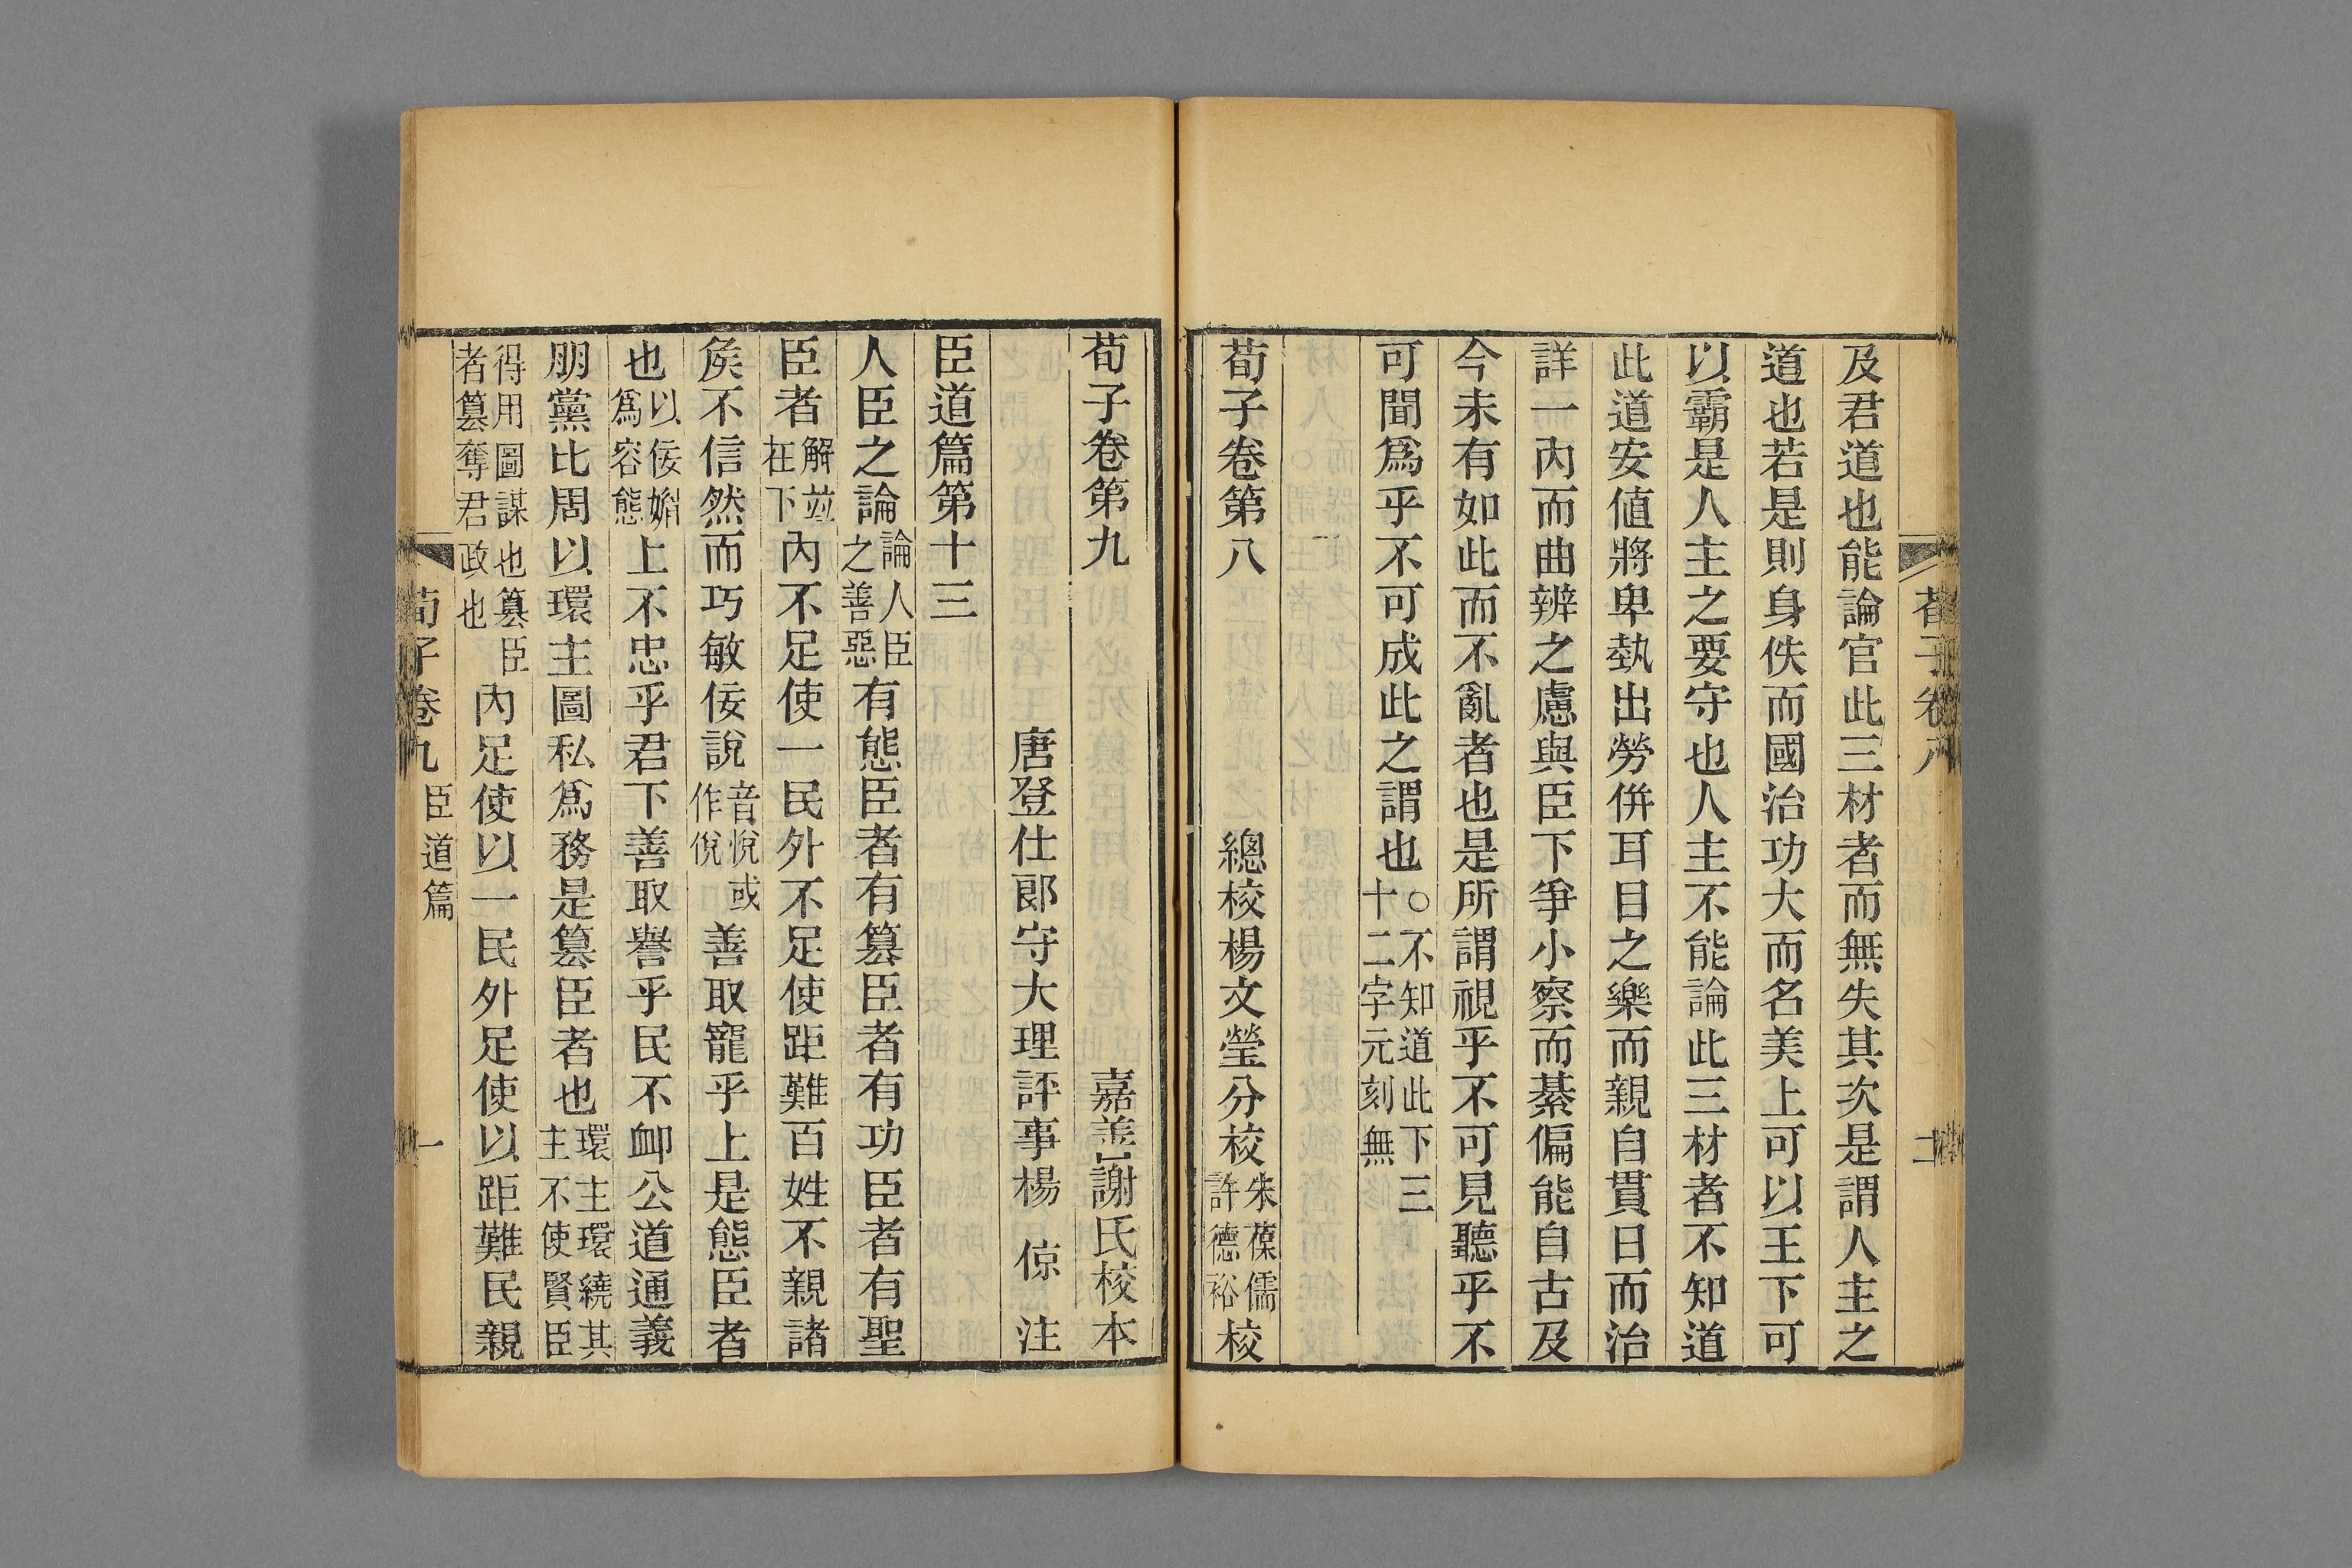 荀子卷八
及君道也能論官此三材者而無失其次是謂人主之
道也若是則身佚而國治功大而名美上可以王下可
以霸是人主之要守也人主不能論此三材者不知道
此道安值將卑埶出勞併耳目之樂而親自貫日而治
詳一內而曲辨之慮與臣下爭小察而綦偏能自古及
今未有如此而不亂者也是所謂視乎不可見聽乎不
可聞爲乎不可成此之謂也○不知道此下三十二字元刻無
荀子卷第八 總校楊文瑩分校朱葆儒許德裕校
荀子卷第九 嘉善謝氏校本
唐登仕郎守大理評事楊 倞 注
臣道篇第十三
人臣之論論人臣之善惡有態臣者有篡臣者有功臣者有聖
臣者解竝在下內不足使一民外不足使距難百姓不親諸
矦不信然而巧敏佞說音悅或作悅善取寵乎上是態臣者
也以佞媚爲容態上不忠乎君下善取譽乎民不卹公道通義
朋黨比周以環主圖私爲務是篡臣者也環主環繞其主不使賢臣
得用圖謀也篡臣者篡奪君政也內足使以一民外足使以距難民親
荀子卷九 臣道篇 一